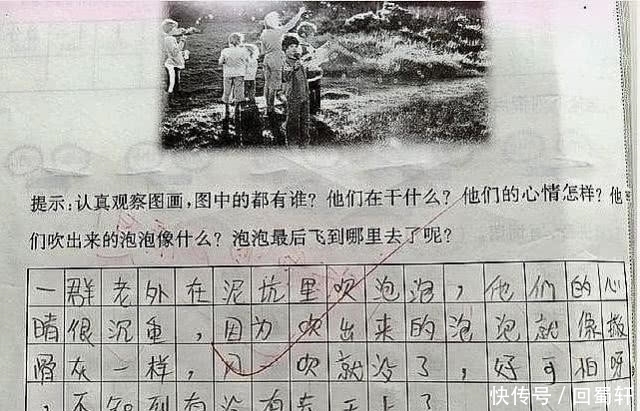 提示:认真观察图画,图中的都有谁?他们在干什么?他们的心情怎样?他
们吹出来的泡泡像什么?泡泡最后飞到哪里去了呢?
一群老外在泥坑里吹泡泡,他们的心
晴很沉重,因为吹出来的泡泡就像撒
骨灰一样,风一吹就没了,好可怕呀
,不知到有没有去天上了
快传号/回蜀轩